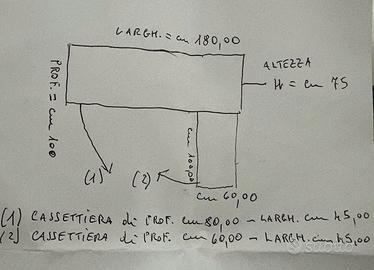 LARGH. = cm 180,00
ALTEZZA
H = cm 75
PROF. = cm 100
cm 100,00
(1)
(2)
cm 60,00
(1) CASSETTIERA di PROF. cm 80,00 - LARGH. cm 45,00
(2) CASSETTIERA di PROF. cm 60,00 - LARGH. cm 45,00